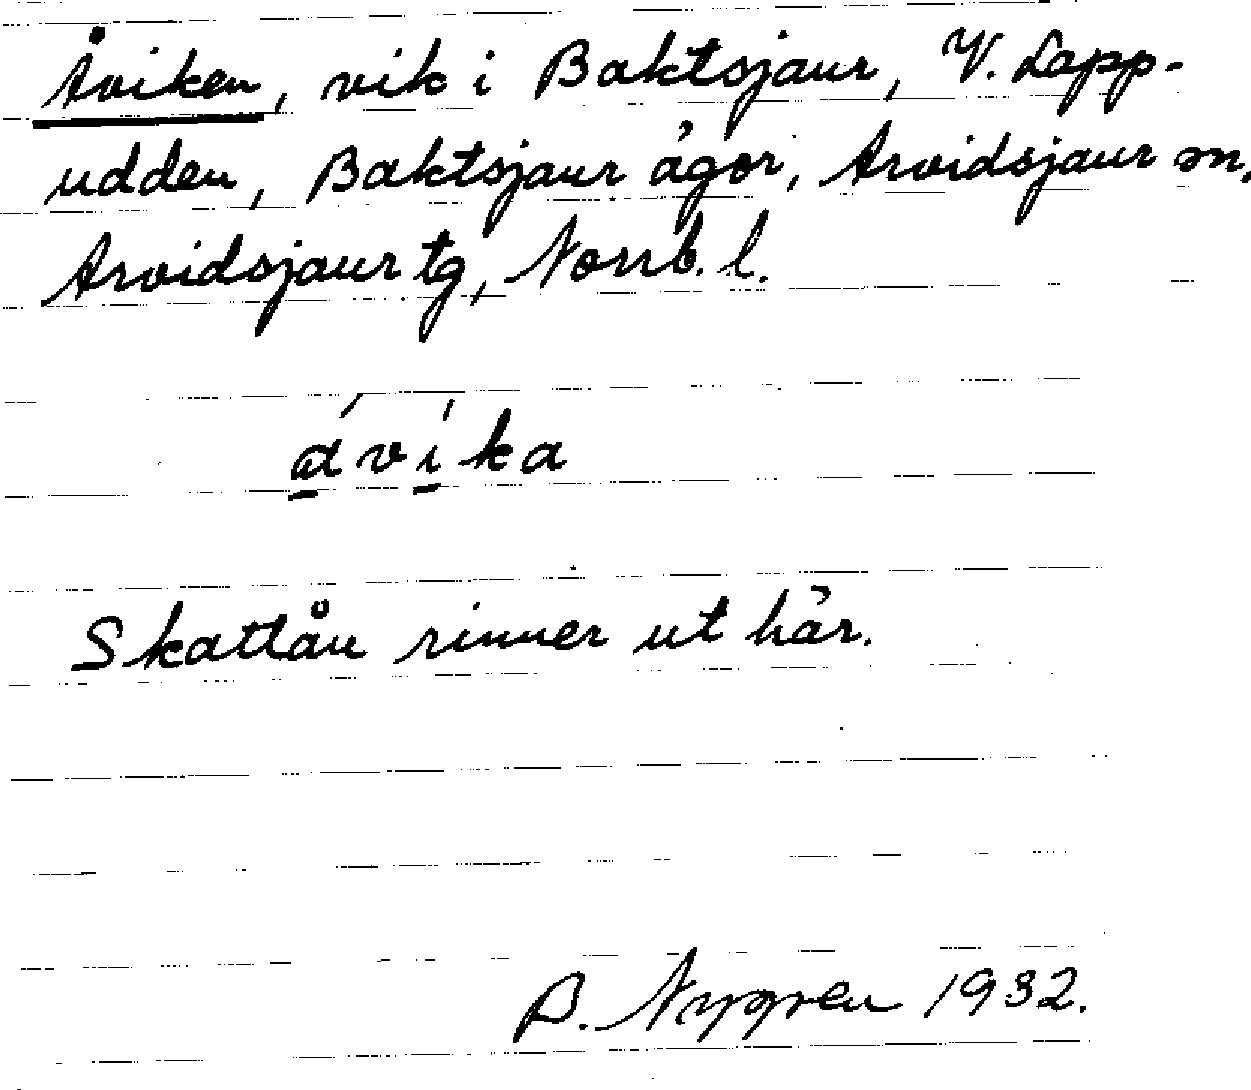 Åviken, vik i Baktsjaur, V. Lapp-
udden, Baktsjaur ägor, Arvidsjaur sn,
Arvidsjaur tg, Norrb. l.
ávíka
Skattån rinner ut här.
B. Nygren 1932.